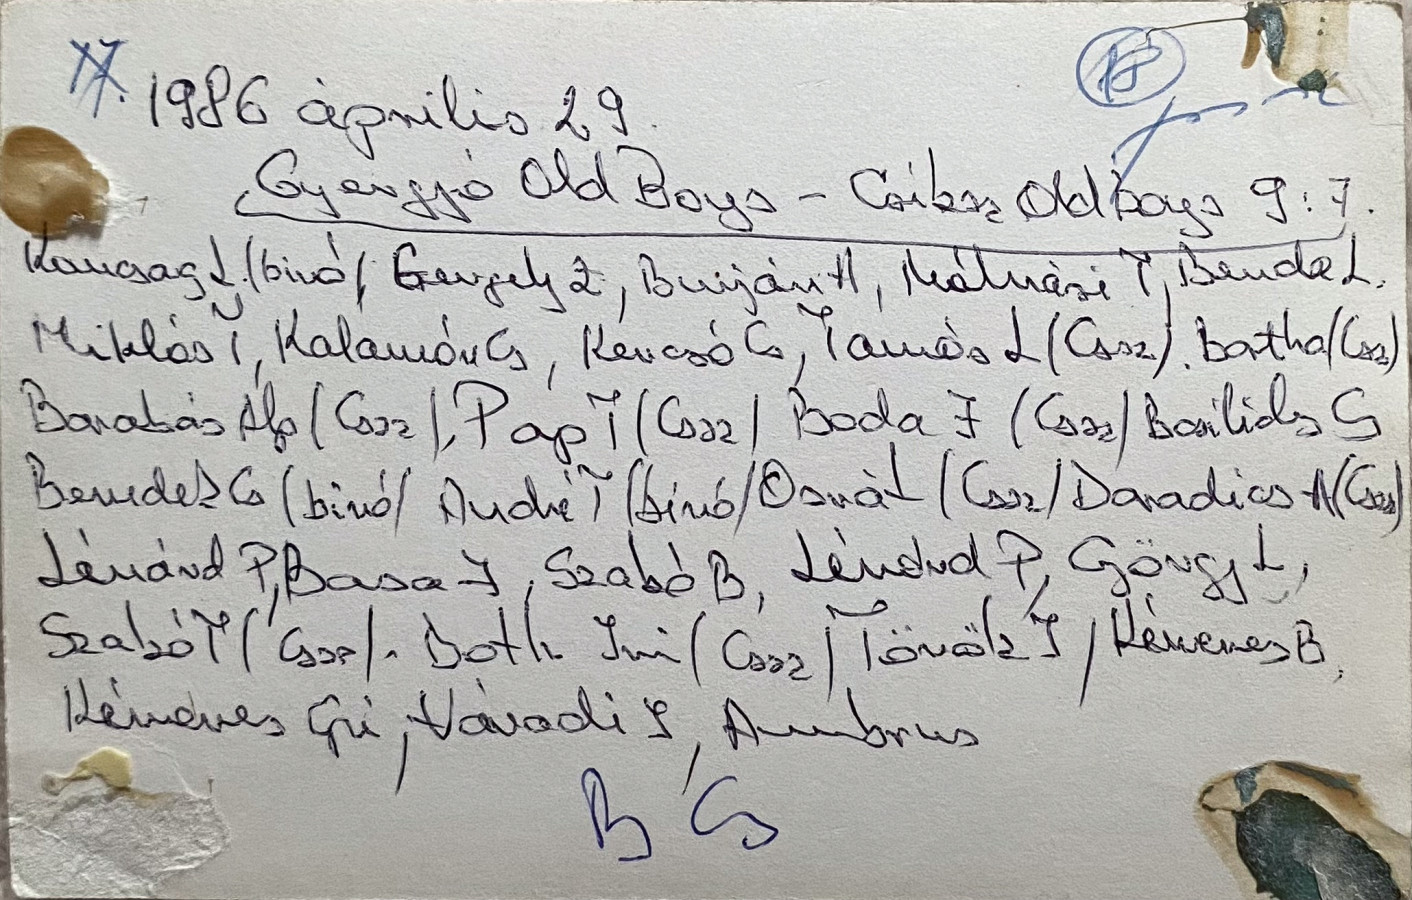 17. 18
1986 április 29.
Gyergyó Old Boys - Csíksz Old boys 9:7.
L. (bíró/ Gergely Z, Burján A, Málnási T, Benda L.
Miklós T, Kalamár G, Kencsó G, Tamás L (Cssz). Bartha (Csz)
Barabás Áp (Cssz), Pap T (Cssz) Boda J (Cssz) Basilides G
Benedek G (bíró/ André T (bíró/ Osvát L (Cssz) Daradics A (Cssz)
Lénárd P, Basa J, Szabó B, Lénárd P, György L,
Szabó T (Cssz). Both Imi (Cssz) Török J, Kémenes B,
Kémenes Gé, Váradi S, Ambrus
B G